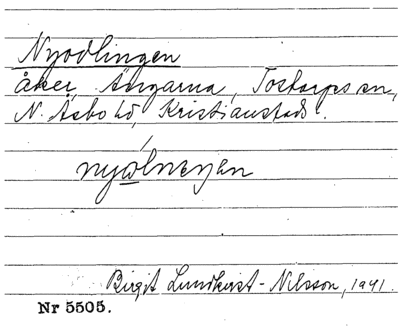 Nyodlingen
åker, Ängarna, Tostarps sn,
N. Åsbo hd, Kristianstads l.
nyωlneŋen
Birgit Lundkvist-Nilsson, 1941.
Nr 5505.